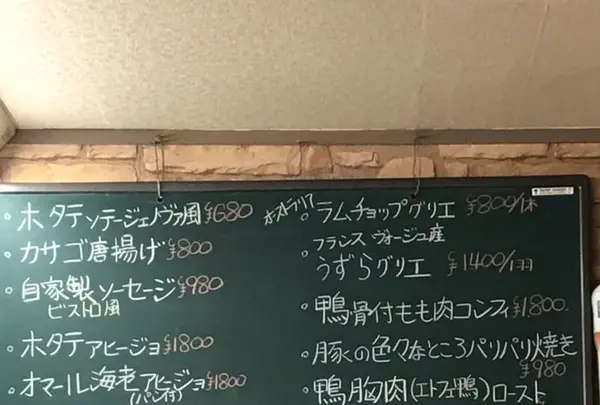 ・ホタテソテージェノヴァ風 ¥680
・カサゴ唐揚げ ¥800
・自家製ソーセージ ¥980
ビストロ風
・ホタテアヒージョ ¥1800
・オマール海老アヒージョ ¥1800
(パン付)
オーストラリア
・ラムチョップグリエ ¥800/1本
フランス ヴォージュ産
・うずらグリエ ¥1400/1羽
・鴨骨付もも肉コンフィ ¥1800
・豚の色々なところパリパリ焼き
¥980
・鴨胸肉(エトフェ鴨)ロースト